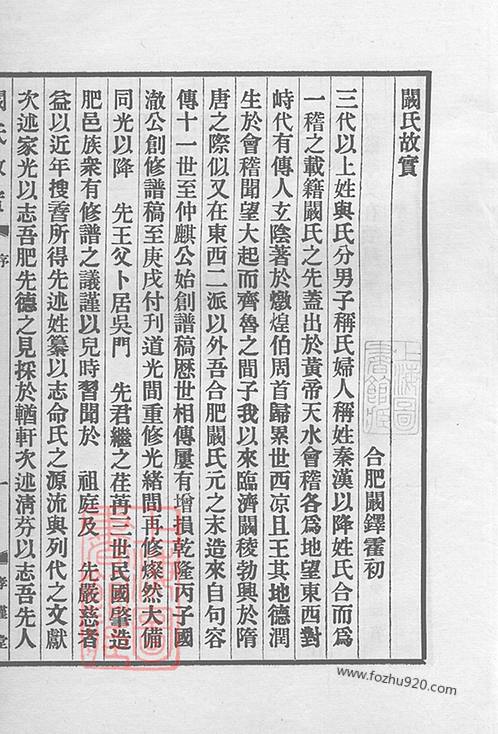 闞氏故實
合肥闞鐸霍初
三代以上姓與氏分男子稱氏婦人稱姓秦漢以降姓氏合而爲
一稽之載籍闞氏之先蓋出於黃帝天水會稽各爲地望東西對
峙代有傳人玄陰著於燉煌伯周首歸累世西凉且王其地德潤
生於會稽聞望大起而齊魯之間子我以來臨濟闞稜勃興於隋
唐之際似又在東西二派以外吾合肥闞氏元之末造來自句容
傳十一世至仲麒公始創譜稿歷世相傳屢有增損乾隆丙子國
澈公創修譜稿至庚戌付刊道光間重修光緒間再修燦然大備
同光以降　先王父卜居吳門　先君繼之荏苒三世民國肇造
肥邑族衆有修譜之議謹以兒時習聞於　祖庭及　先嚴慈者
益以近年搜香所得先述姓纂以志命氏之源流與列代之文獻
次述家光以志吾肥先德之見採於輶軒次述清芬以志吾先人
闞氏故實
序
一
孝謹堂
上海圖書館藏
www.fozhu920.com